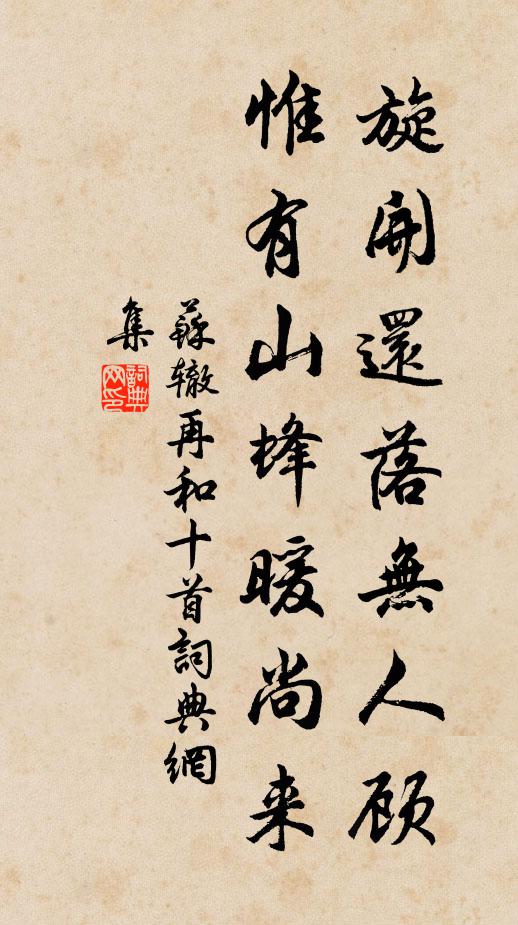 旋開還落無人顾
惟有山蜂暖尚来
蘇辙再和十首詞典網
集
詞典
网印